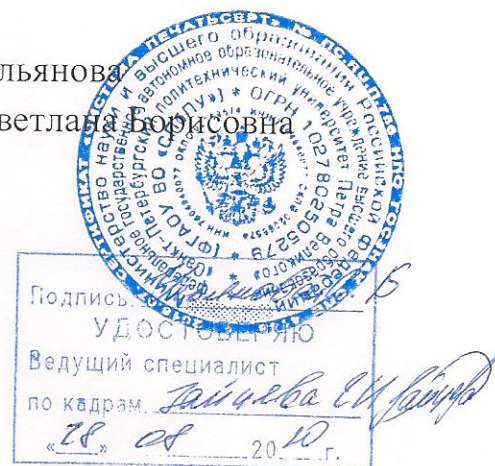 льянова
ветлана Борисовна
СЕРТИФИКАТ
Министерство науки и высшего образования Российской Федерации
Федеральное государственное автономное образовательное учреждение высшего образования
«Санкт-Петербургский политехнический университет Петра Великого»
(ФГАОУ ВО «СПбПУ») * ОГРН 1027802505279 *
Подпись
УДОСТОВЕРЯЮ
Ведущий специалист
по кадрам Зайцева
«28» 08 2020 г.